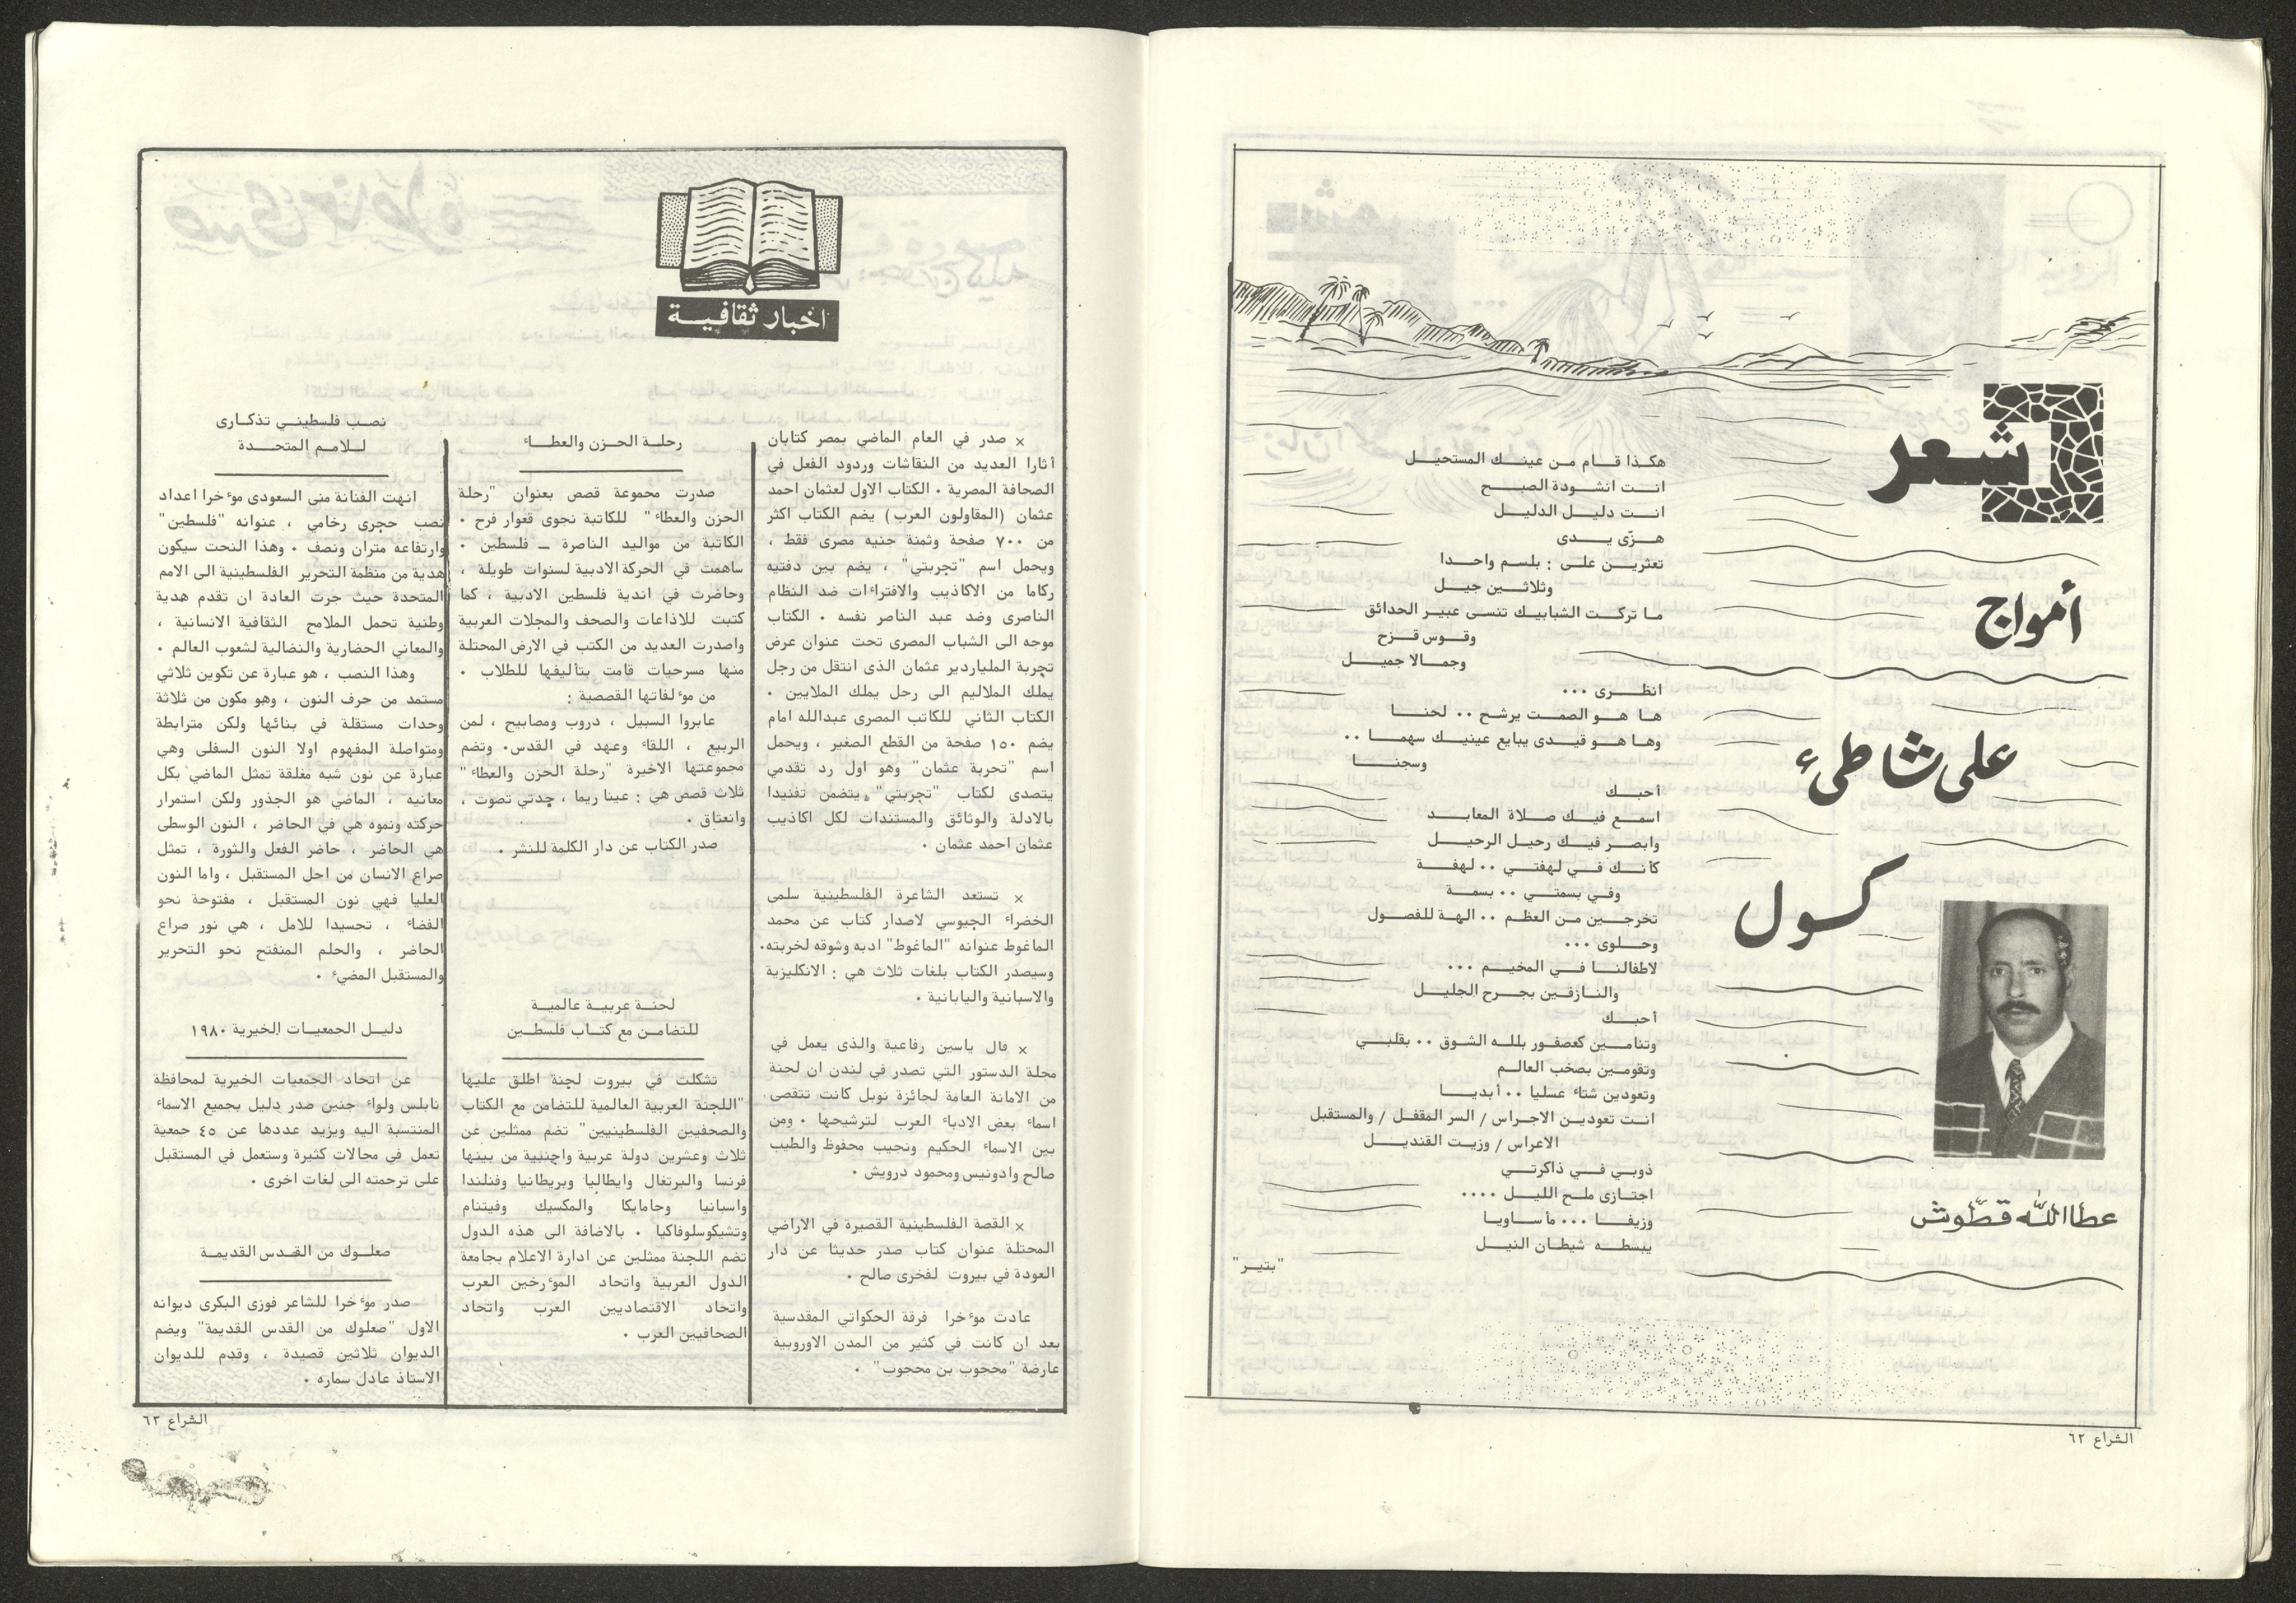 شعر
أمواج
على شاطىء
كسول
عطا الله قطوش
هكذا قام من عينك المستحيل
انت انشودة الصبح
انت دليل الدليل
هزّى يدى
تعثرين على : بلسم واحدا
وثلاثين جيل
ما تركت الشبابيك تنسى عبير الحدائق
وقوس قزح
وجمالا جميل
انظرى ...
ها هو الصمت يرشح .. لحنا
وها هو قيدى يبايع عينيك سهما ..
وسجنا
أحبك
اسمع فيك صلاة المعابد
وابصر فيك رحيل الرحيل
كأنك في لهفتي .. لهفة
وفي بسمتي .. بسمة
تخرجين من العظم .. الهة للفصول
وحلوى ...
لاطفالنا في المخيم ...
والنازفين بجرح الجليل
أحبك
وتنامين كعصفور بلله الشوق .. بقلبي
وتقومين بصخب العالم
وتعودين شتاء عسليا .. أبديا
انت تعودين الاجراس / السر المقفل / والمستقبل
الاعراس / وزيت القنديل
ذوبي في ذاكرتي
اجتازى ملح الليل ....
وزيفا ... مأساويا
يبسطه شيطان النيل
"بتير"
الشراع ٦٢
اخبار ثقافية
× صدر في العام الماضي بمصر كتابان
أثارا العديد من النقاشات وردود الفعل في
الصحافة المصرية . الكتاب الاول لعثمان احمد
عثمان (المقاولون العرب) يضم الكتاب اكثر
من ٧٠٠ صفحة وثمنة جنيه مصرى فقط ،
ويحمل اسم "تجربتي" ، يضم بين دفتيه
ركاما من الاكاذيب والافتراءات ضد النظام
الناصرى وضد عبد الناصر نفسه . الكتاب
موجه الى الشباب المصرى تحت عنوان عرض
تجربة الملياردير عثمان الذى انتقل من رجل
يملك الملاليم الى رجل يملك الملايين .
الكتاب الثاني للكاتب المصرى عبدالله امام
يضم ١٥٠ صفحة من القطع الصغير ، ويحمل
اسم "تجربة عثمان" وهو اول رد تقدمي
يتصدى لكتاب "تجربتي" يتضمن تفنيدا
بالادلة والوثائق والمستندات لكل اكاذيب
عثمان احمد عثمان .
× تستعد الشاعرة الفلسطينية سلمى
الخضراء الجيوسي لاصدار كتاب عن محمد
الماغوط عنوانه "الماغوط" ادبه وشوقه لخربته.
وسيصدر الكتاب بلغات ثلاث هي : الانكليزية
والاسبانية واليابانية .
× قال ياسين رفاعية والذى يعمل في
مجلة الدستور التي تصدر في لندن ان لجنة
من الامانة العامة لجائزة نوبل كانت تتقصى
اسماء بعض الادباء العرب لترشيحها . ومن
بين الاسماء الحكيم ونجيب محفوظ والطيب
صالح وادونيس ومحمود درويش .
× القصة الفلسطينية القصيرة في الاراضي
المحتلة عنوان كتاب صدر حديثا عن دار
العودة في بيروت لفخرى صالح .
عادت موءخرا فرقة الحكواتي المقدسية
بعد ان كانت في كثير من المدن الاوروبية
عارضة "محجوب بن محجوب" .
رحلة الحزن والعطاء
صدرت مجموعة قصص بعنوان "رحلة
الحزن والعطاء" للكاتبة نجوى قعوار فرح .
الكاتبة من مواليد الناصرة ــ فلسطين .
ساهمت في الحركة الادبية لسنوات طويلة ،
وحاضرت في اندية فلسطين الادبية ، كما
كتبت للاذاعات والصحف والمجلات العربية
واصدرت العديد من الكتب في الارض المحتلة
منها مسرحيات قامت بتأليفها للطلاب .
من موءلفاتها القصصية :
عابروا السبيل ، دروب ومصابيح ، لمن
الربيع ، اللقاء وعهد في القدس. وتضم
مجموعتها الاخيرة "رحلة الحزن والعطاء"
ثلاث قصص هي : عينا ريما ، جدتي تصوت ،
وانعتاق .
صدر الكتاب عن دار الكلمة للنشر .
لجنة عربية عالمية
للتضامن مع كتاب فلسطين
تشكلت في بيروت لجنة اطلق عليها
"اللجنة العربية العالمية للتضامن مع الكتاب
والصحفيين الفلسطينيين" تضم ممثلين عن
ثلاث وعشرين دولة عربية واجنبية من بينها
فرنسا والبرتغال وايطاليا وبريطانيا وفنلندا
واسبانيا وجامايكا والمكسيك وفيتنام
وتشيكوسلوفاكيا . بالاضافة الى هذه الدول
تضم اللجنة ممثلين عن ادارة الاعلام بجامعة
الدول العربية واتحاد الموءرخين العرب
واتحاد الاقتصاديين العرب واتحاد
الصحافيين العرب .
نصب فلسطيني تذكارى
للامم المتحدة
انهت الفنانة منى السعودى موءخرا اعداد
نصب حجرى رخامي ، عنوانه "فلسطين"
وارتفاعه متران ونصف . وهذا النحت سيكون
هدية من منظمة التحرير الفلسطينية الى الامم
المتحدة حيث جرت العادة ان تقدم هدية
وطنية تحمل الملامح الثقافية الانسانية ،
والمعاني الحضارية والنضالية لشعوب العالم .
وهذا النصب ، هو عبارة عن تكوين ثلاثي
مستمد من حرف النون ، وهو مكون من ثلاثة
وحدات مستقلة في بنائها ولكن مترابطة
ومتواصلة المفهوم اولا النون السفلى وهي
عبارة عن نون شبه مغلقة تمثل الماضي بكل
معانيه ، الماضي هو الجذور ولكن استمرار
حركته ونموه هي في الحاضر ، النون الوسطى
هي الحاضر ، حاضر الفعل والثورة ، تمثل
صراع الانسان من اجل المستقبل ، واما النون
العليا فهي نون المستقبل ، مفتوحة نحو
الفضاء ، تجسيدا للامل ، هي نور صراع
الحاضر ، والحلم المنفتح نحو التحرير
والمستقبل المضيء .
دليل الجمعيات الخيرية ١٩٨٠
عن اتحاد الجمعيات الخيرية لمحافظة
نابلس ولواء جنين صدر دليل بجميع الاسماء
المنتسبة اليه ويزيد عددها عن ٤٥ جمعية
تعمل في مجالات كثيرة وستعمل في المستقبل
على ترجمته الى لغات اخرى .
صعلوك من القدس القديمة
صدر موءخرا للشاعر فوزى البكرى ديوانه
الاول "صعلوك من القدس القديمة" ويضم
الديوان ثلاثين قصيدة ، وقدم للديوان
الاستاذ عادل سماره .
الشراع ٦٣